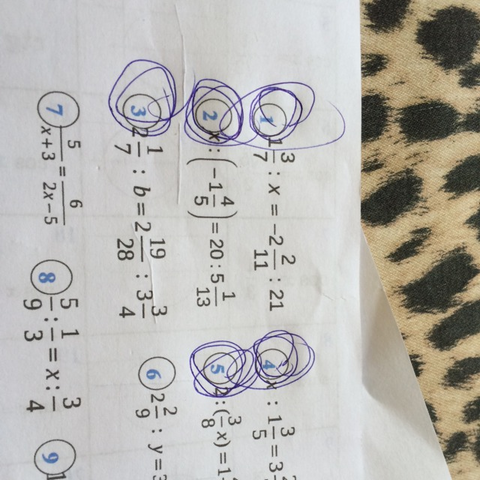 1 1 3/7 : x = -2 2/11 : 21
2 x : (-1 4/5) = 20 : 5 1/13
3 1/7 : b = 2 19/28 : 3 3/4
7 5/(x+3) = 6/(2x-5)
4 x : 1 3/5 = 3
5 : (3/8 x) = 1
6 2 2/9 : y = 3
8 5/9 : 1/3 = x : 3/4
9 1